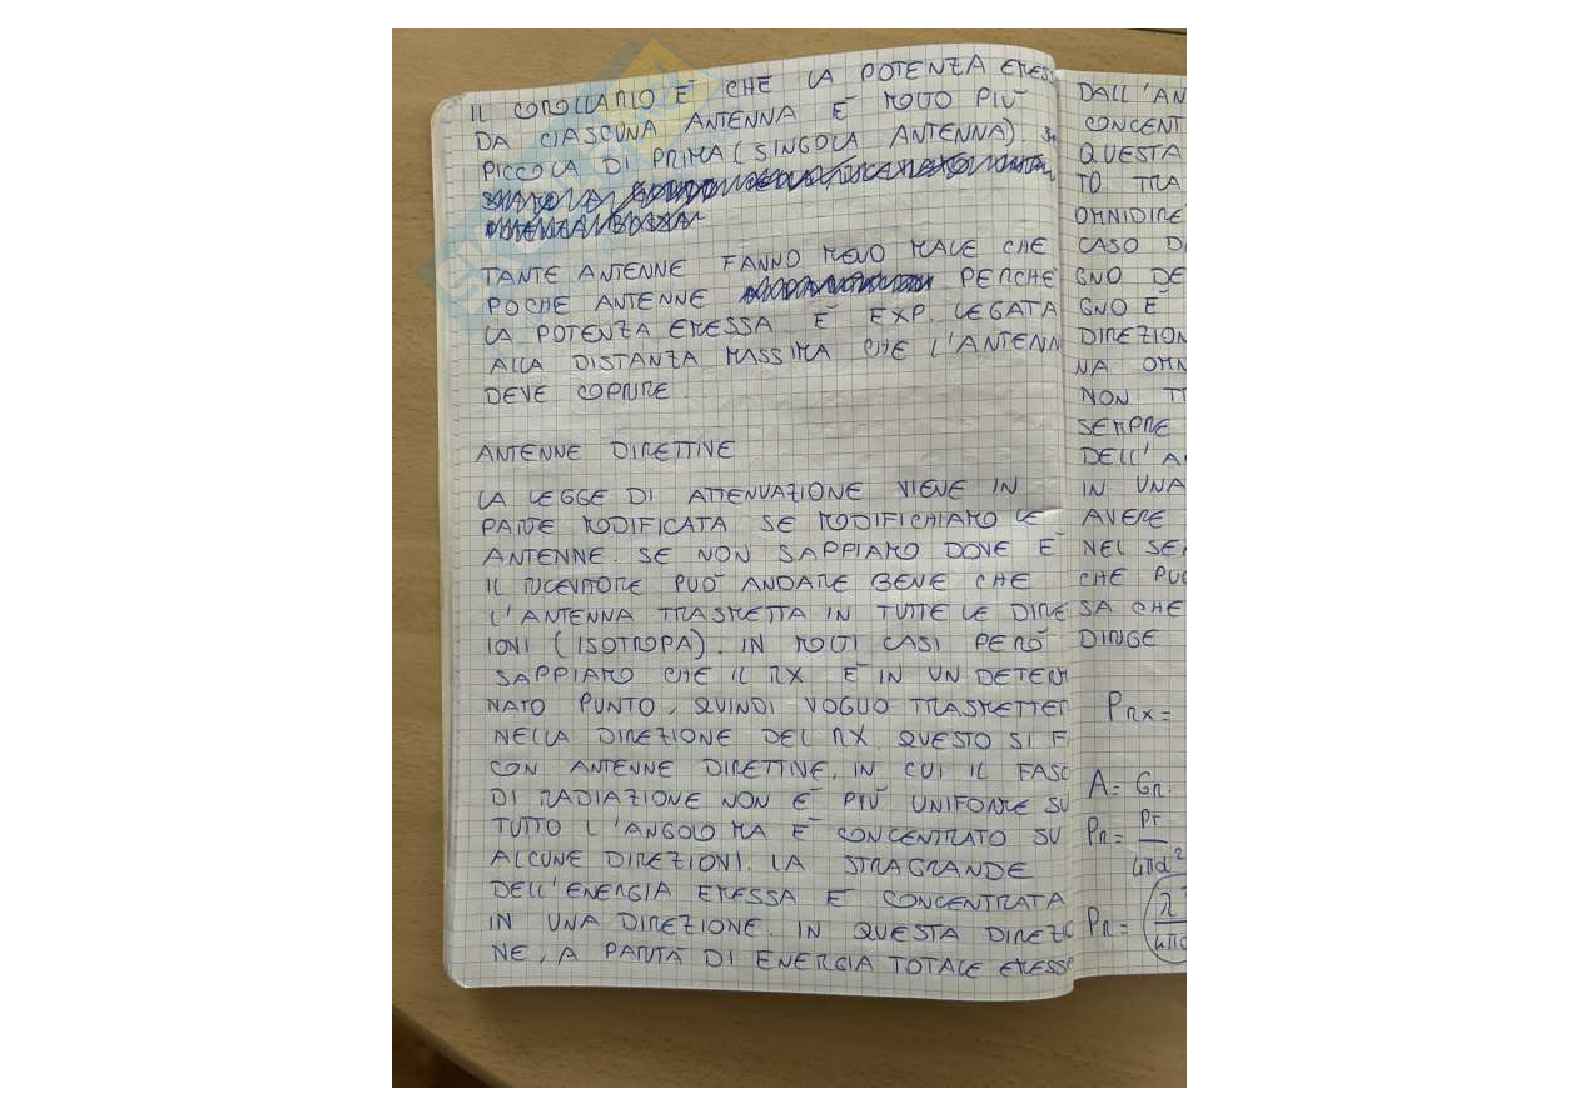 IL COROLLARIO È CHE LA POTENZA EMESS
DA CIASCUNA ANTENNA È MOLTO PIÙ
PICCOLA DI PRIMA (SINGOLA ANTENNA)
TANTE ANTENNE FANNO MENO MALE CHE
POCHE ANTENNE PERCHÈ
LA POTENZA EMESSA È EXP. LEGATA
ALLA DISTANZA MASSIMA CHE L'ANTENN
DEVE COPRIRE
ANTENNE DIRETTIVE
LA LEGGE DI ATTENUAZIONE VIENE IN
PARTE MODIFICATA SE MODIFICHIAMO LE
ANTENNE. SE NON SAPPIAMO DOVE È
IL RICEVITORE PUÒ ANDARE BENE CHE
L'ANTENNA TRASMETTA IN TUTTE LE DIRE
IONI (ISOTROPA). IN MOLTI CASI PERÒ
SAPPIAMO CHE IL RX È IN UN DETERM
NATO PUNTO, QUINDI VOGLIO TRASMETTER
NELLA DIREZIONE DEL RX. QUESTO SI F
CON ANTENNE DIRETTIVE, IN CUI IL FASC
DI RADIAZIONE NON È PIÙ UNIFORME SU
TUTTO L'ANGOLO MA È CONCENTRATO SU
ALCUNE DIREZIONI. LA STRAGRANDE
DELL'ENERGIA EMESSA È CONCENTRATA
IN UNA DIREZIONE. IN QUESTA DIREZ
NE, A PARITÀ DI ENERGIA TOTALE EMESS
DALL'AN
CONCENT
QUESTA
TO TRA
OMNIDIRE
CASO D
GNO DE
GNO È
DIREZION
NA OMN
NON T
SEMPRE
DELL'A
IN UNA
AVERE
NEL SE
CHE PUO
SA CHE
DIRIGE
PRX=
A= GR
PR= PT / 4πd²
PR= (λ / 4πd